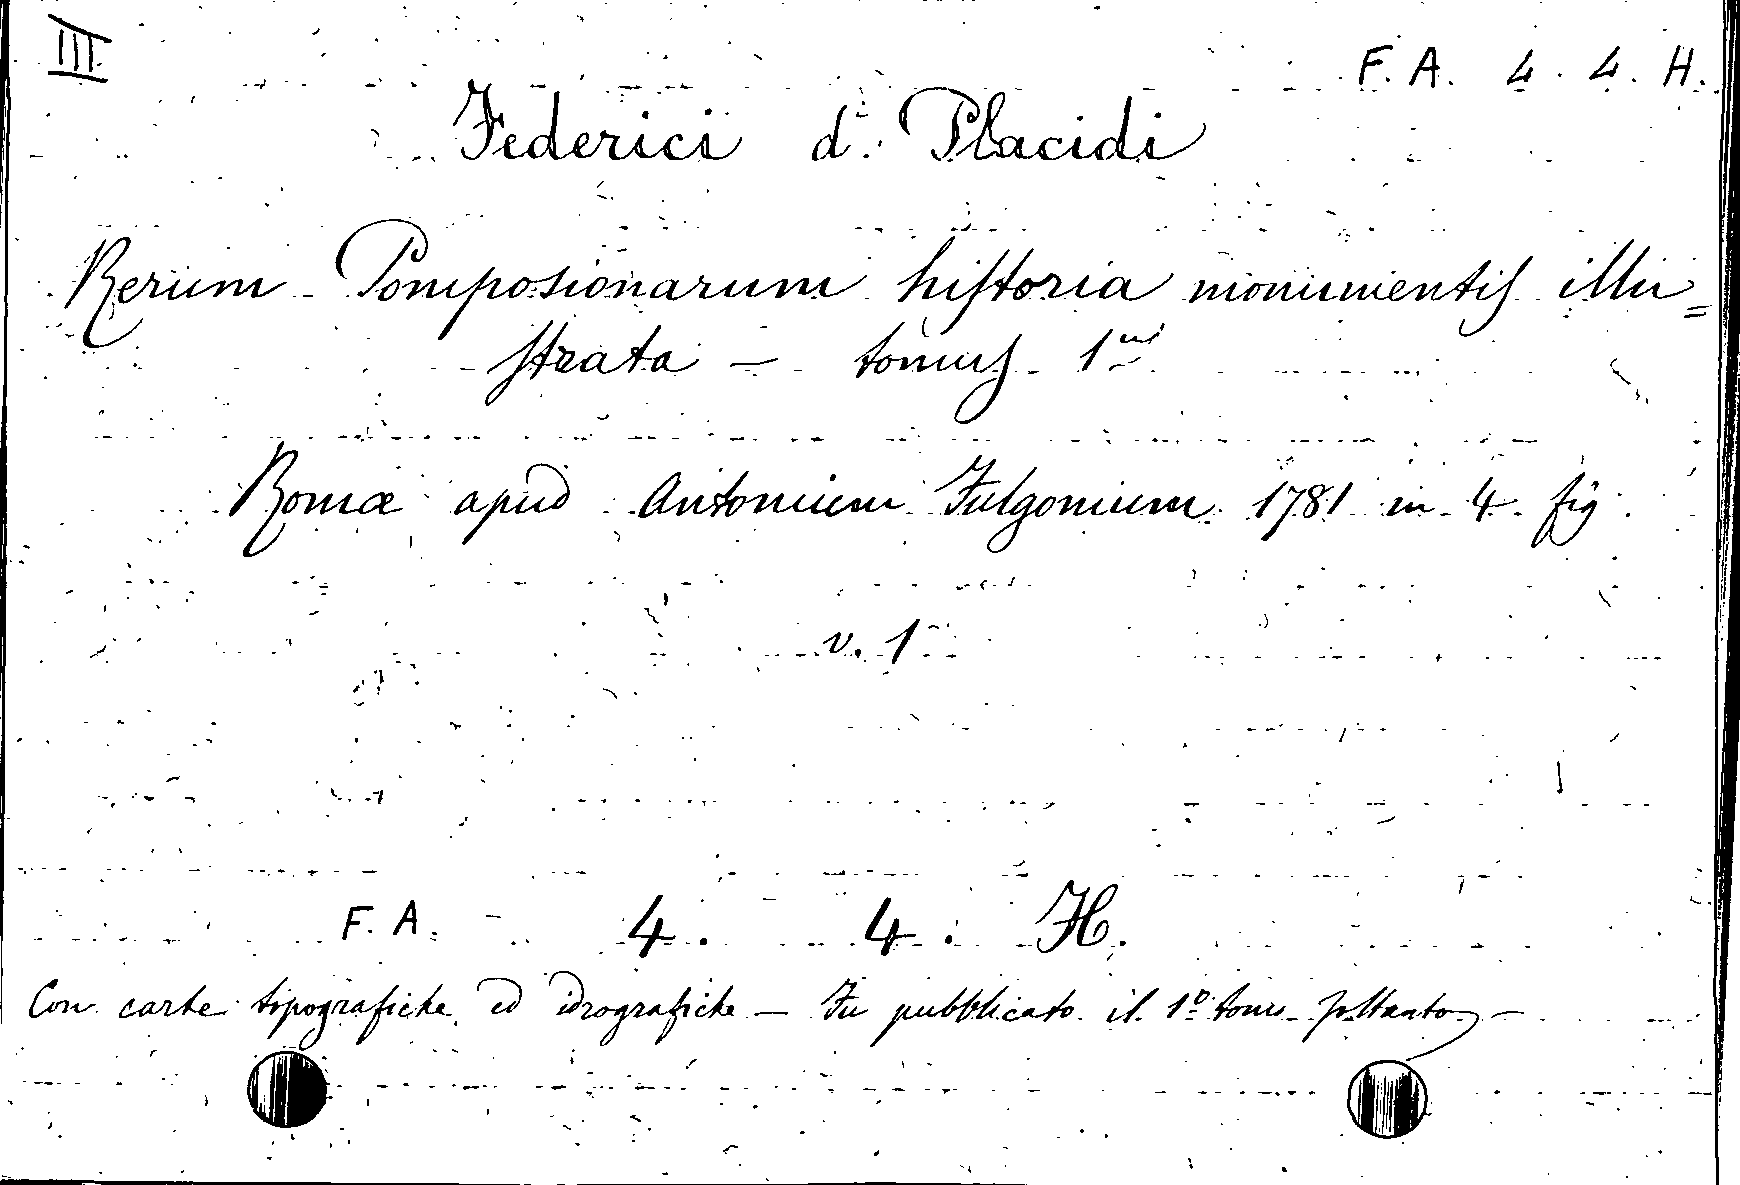 III
F. A. 4. 4. H.
Federici d. Placidi
Rerum Pomposianarum historia monumentis illu=
strata — tomus 1us
Romæ apud Antonium Fulgonium 1781 in 4. fig.
v. 1
F. A. 4. 4. H.
Con carte topografiche ed idrografiche — Fu pubblicato il 1º tomo soltanto —